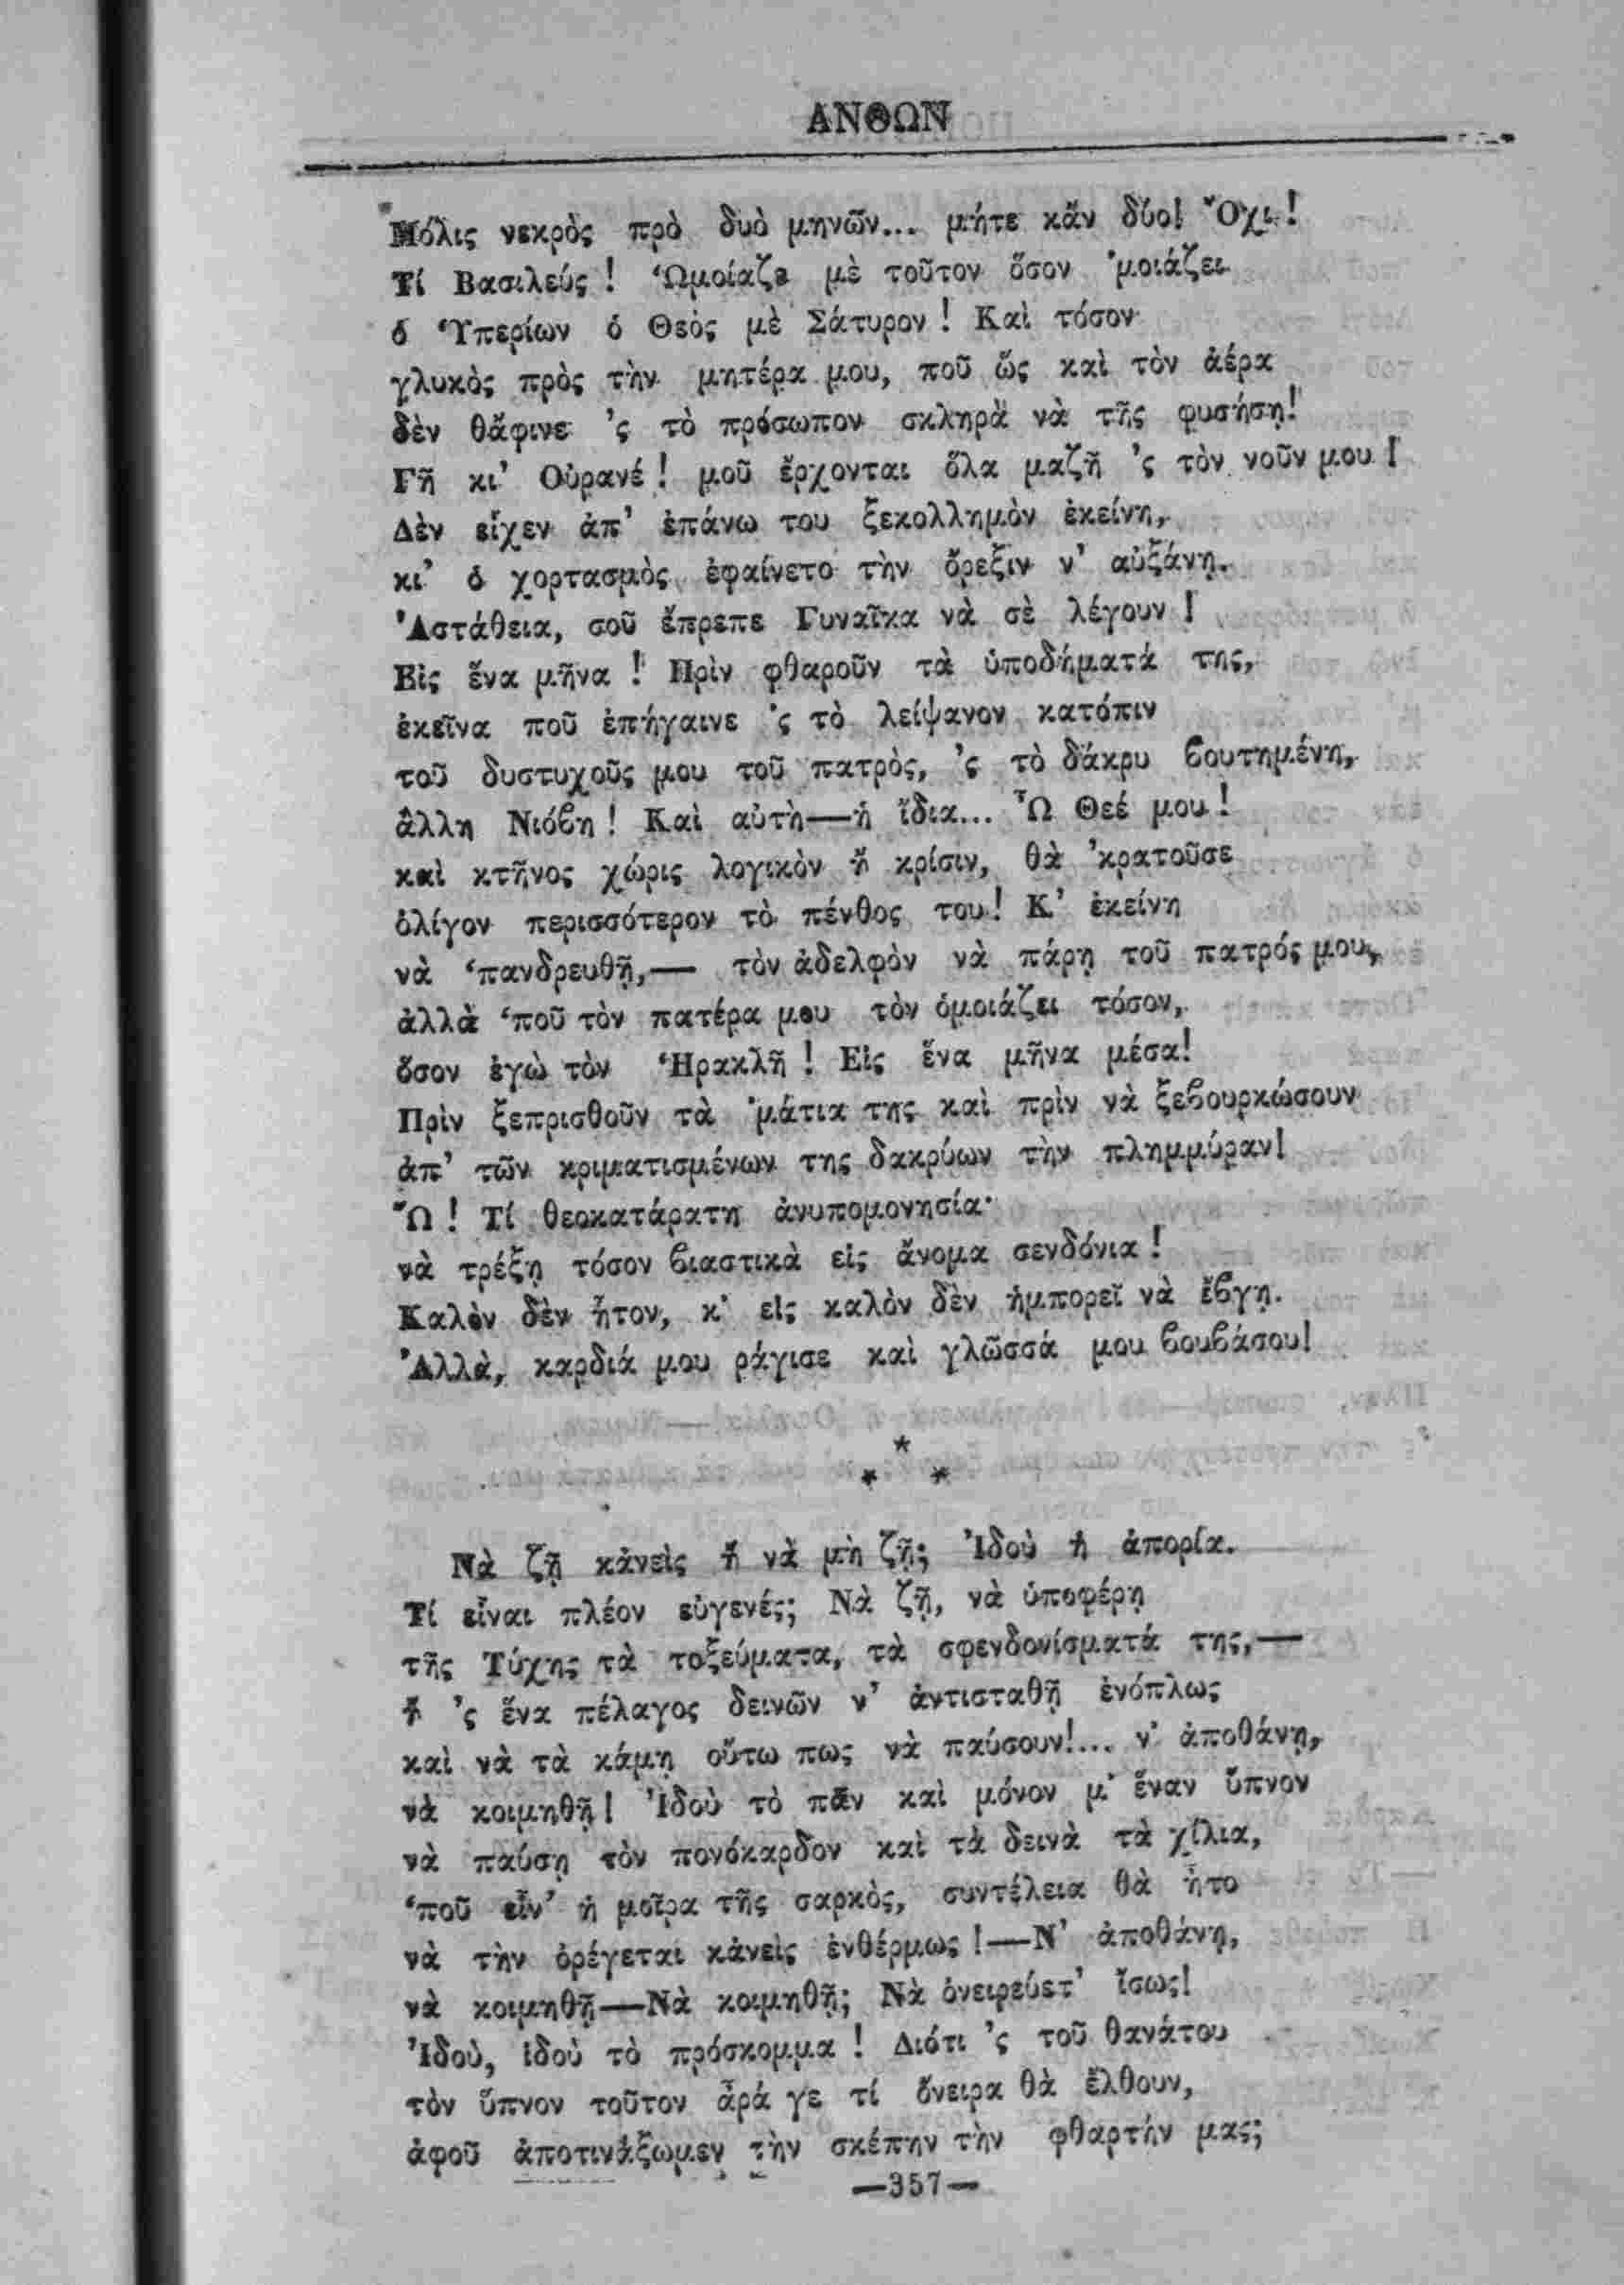 ΑΝΘΩΝ
Μόλις νεκρὸς πρὸ δυὸ μηνῶν... μήτε κἄν δύο! Ὄχι!
Τί Βασιλεύς! Ὡμοίαζε μὲ τοῦτον ὅσον ᾿μοιάζει
ὁ Ὑπερίων ὁ Θεὸς μὲ Σάτυρον! Καὶ τόσον
γλυκὸς πρὸς τὴν μητέρα μου, ποῦ ὥς καὶ τὸν ἀέρα
δὲν θἄφινε ᾿ς τὸ πρόσωπον σκληρὰ νὰ τῆς φυσήσῃ!
Γῆ κι᾿ Οὐρανέ! μοῦ ἔρχονται ὅλα μαζῆ ᾿ς τὸν νοῦν μου!
Δὲν εἶχεν ἀπ᾿ ἐπάνω του ξεκολλημὸν ἐκείνη,
κι᾿ ὁ χορτασμὸς ἐφαίνετο τὴν ὄρεξιν ν᾿ αὐξάνῃ.
Ἀστάθεια, σοῦ ἔπρεπε Γυναῖκα νὰ σὲ λέγουν!
Εἰς ἕνα μῆνα! Πρὶν φθαροῦν τὰ ὑποδήματά της,
ἐκεῖνα ποῦ ἐπήγαινε ᾿ς τὸ λείψανον κατόπιν
τοῦ δυστυχοῦς μου τοῦ πατρὸς, ᾿ς τὸ δάκρυ ϐουτημένη,
ἄλλη Νιόϐη! Καὶ αὐτὴ—ἡ ἴδια... Ὦ Θεέ μου!
καὶ κτῆνος χώρις λογικὸν ἢ κρίσιν, θὰ ᾿κρατοῦσε
ὀλίγον περισσότερον τὸ πένθος του! Κ᾿ ἐκείνη
νὰ ‘πανδρευθῇ,— τὸν ἀδελφὸν νὰ πάρῃ τοῦ πατρός μου,
ἀλλὰ ‘ποῦ τὸν πατέρα μου τὸν ὁμοιάζει τόσον,
ὅσον ἐγὼ τὸν Ἡρακλῆ! Εἰς ἕνα μῆνα μέσα!
Πρὶν ξεπρισθοῦν τὰ ᾿μάτια της καὶ πρὶν νὰ ξεϐουρκώσουν
ἀπ᾿ τῶν κριματισμένων της δακρύων τὴν πλημμύραν!
Ὤ! Τί θεοκατάρατη ἀνυπομονησία·
νὰ τρέξῃ τόσον ϐιαστικὰ εἰς ἄνομα σενδόνια!
Καλὸν δὲν ἦτον, κ᾿ εἰς καλὸν δὲν ἡμπορεῖ νὰ ἔϐγῃ.
Ἀλλὰ, καρδιά μου ράγισε καὶ γλῶσσά μου ϐουϐάσου!
*
* *
Νὰ ζῇ κἀνεὶς ἢ νὰ μὴ ζῇ; Ἰδοὺ ἡ ἀπορία.
Τί εἶναι πλέον εὐγενές; Νὰ ζῇ, νὰ ὑποφέρῃ
τῆς Τύχης τὰ τοξεύματα, τὰ σφενδονίσματά της,—
ἢ ᾿ς ἕνα πέλαγος δεινῶν ν᾿ ἀντισταθῇ ἐνόπλως
καὶ νὰ τὰ κάμῃ οὕτω πως νὰ παύσουν!... ν᾿ ἀποθάνῃ,
νὰ κοιμηθῇ! Ἰδοὺ τὸ πᾶν καὶ μόνον μ᾿ ἕναν ὕπνον
νὰ παύσῃ τὸν πονόκαρδον καὶ τὰ δεινὰ τὰ χίλια,
‘ποῦ εἶν᾿ ἡ μοῖρα τῆς σαρκὸς, συντέλεια θὰ ἦτο
νὰ τὴν ὀρέγεται κἀνεὶς ἐνθέρμως!—Ν᾿ ἀποθάνῃ,
νὰ κοιμηθῇ—Νὰ κοιμηθῇ; Νὰ ὀνειρεύετ᾿ ἴσως!
Ἰδοὺ, ἰδοὺ τὸ πρόσκομμα! Διότι ᾿ς τοῦ θανάτου
τὸν ὕπνον τοῦτον ἆρά γε τί ὄνειρα θὰ ἔλθουν,
ἀφοῦ ἀποτινάξωμεν τὴν σκέπην τὴν φθαρτήν μας;
—357—